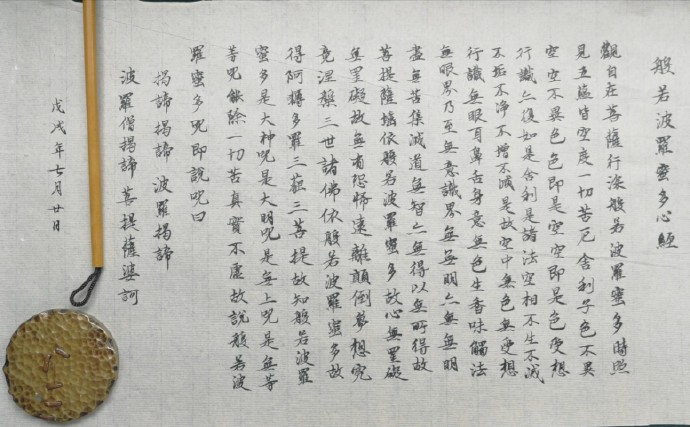 般若波羅蜜多心經
觀自在菩薩行深般若波羅蜜多時照
見五蘊皆空度一切苦厄舍利子色不異
空空不異色色即是空空即是色受想
行識亦復如是舍利是諸法空相不生不滅
不垢不淨不增不減是故空中無色無受想
行識無眼耳鼻舌身意無色生香味觸法
無眼界乃至無意識界無無明亦無無明
盡無苦集滅道無智亦無得以無所得故
菩提薩埵依般若波羅蜜多故心無罣礙
無罣礙故無有恐怖遠離顛倒夢想究
竟涅槃三世諸佛依般若波羅蜜多故
得阿耨多羅三藐三菩提故知般若波羅
蜜多是大神呪是大明呪是無上呪是無等
等呪能除一切苦真實不虛故說般若波
羅蜜多呪即說呪曰
揭諦揭諦 波羅揭諦
波羅僧揭諦 菩提薩婆訶
戊戌年七月廿日